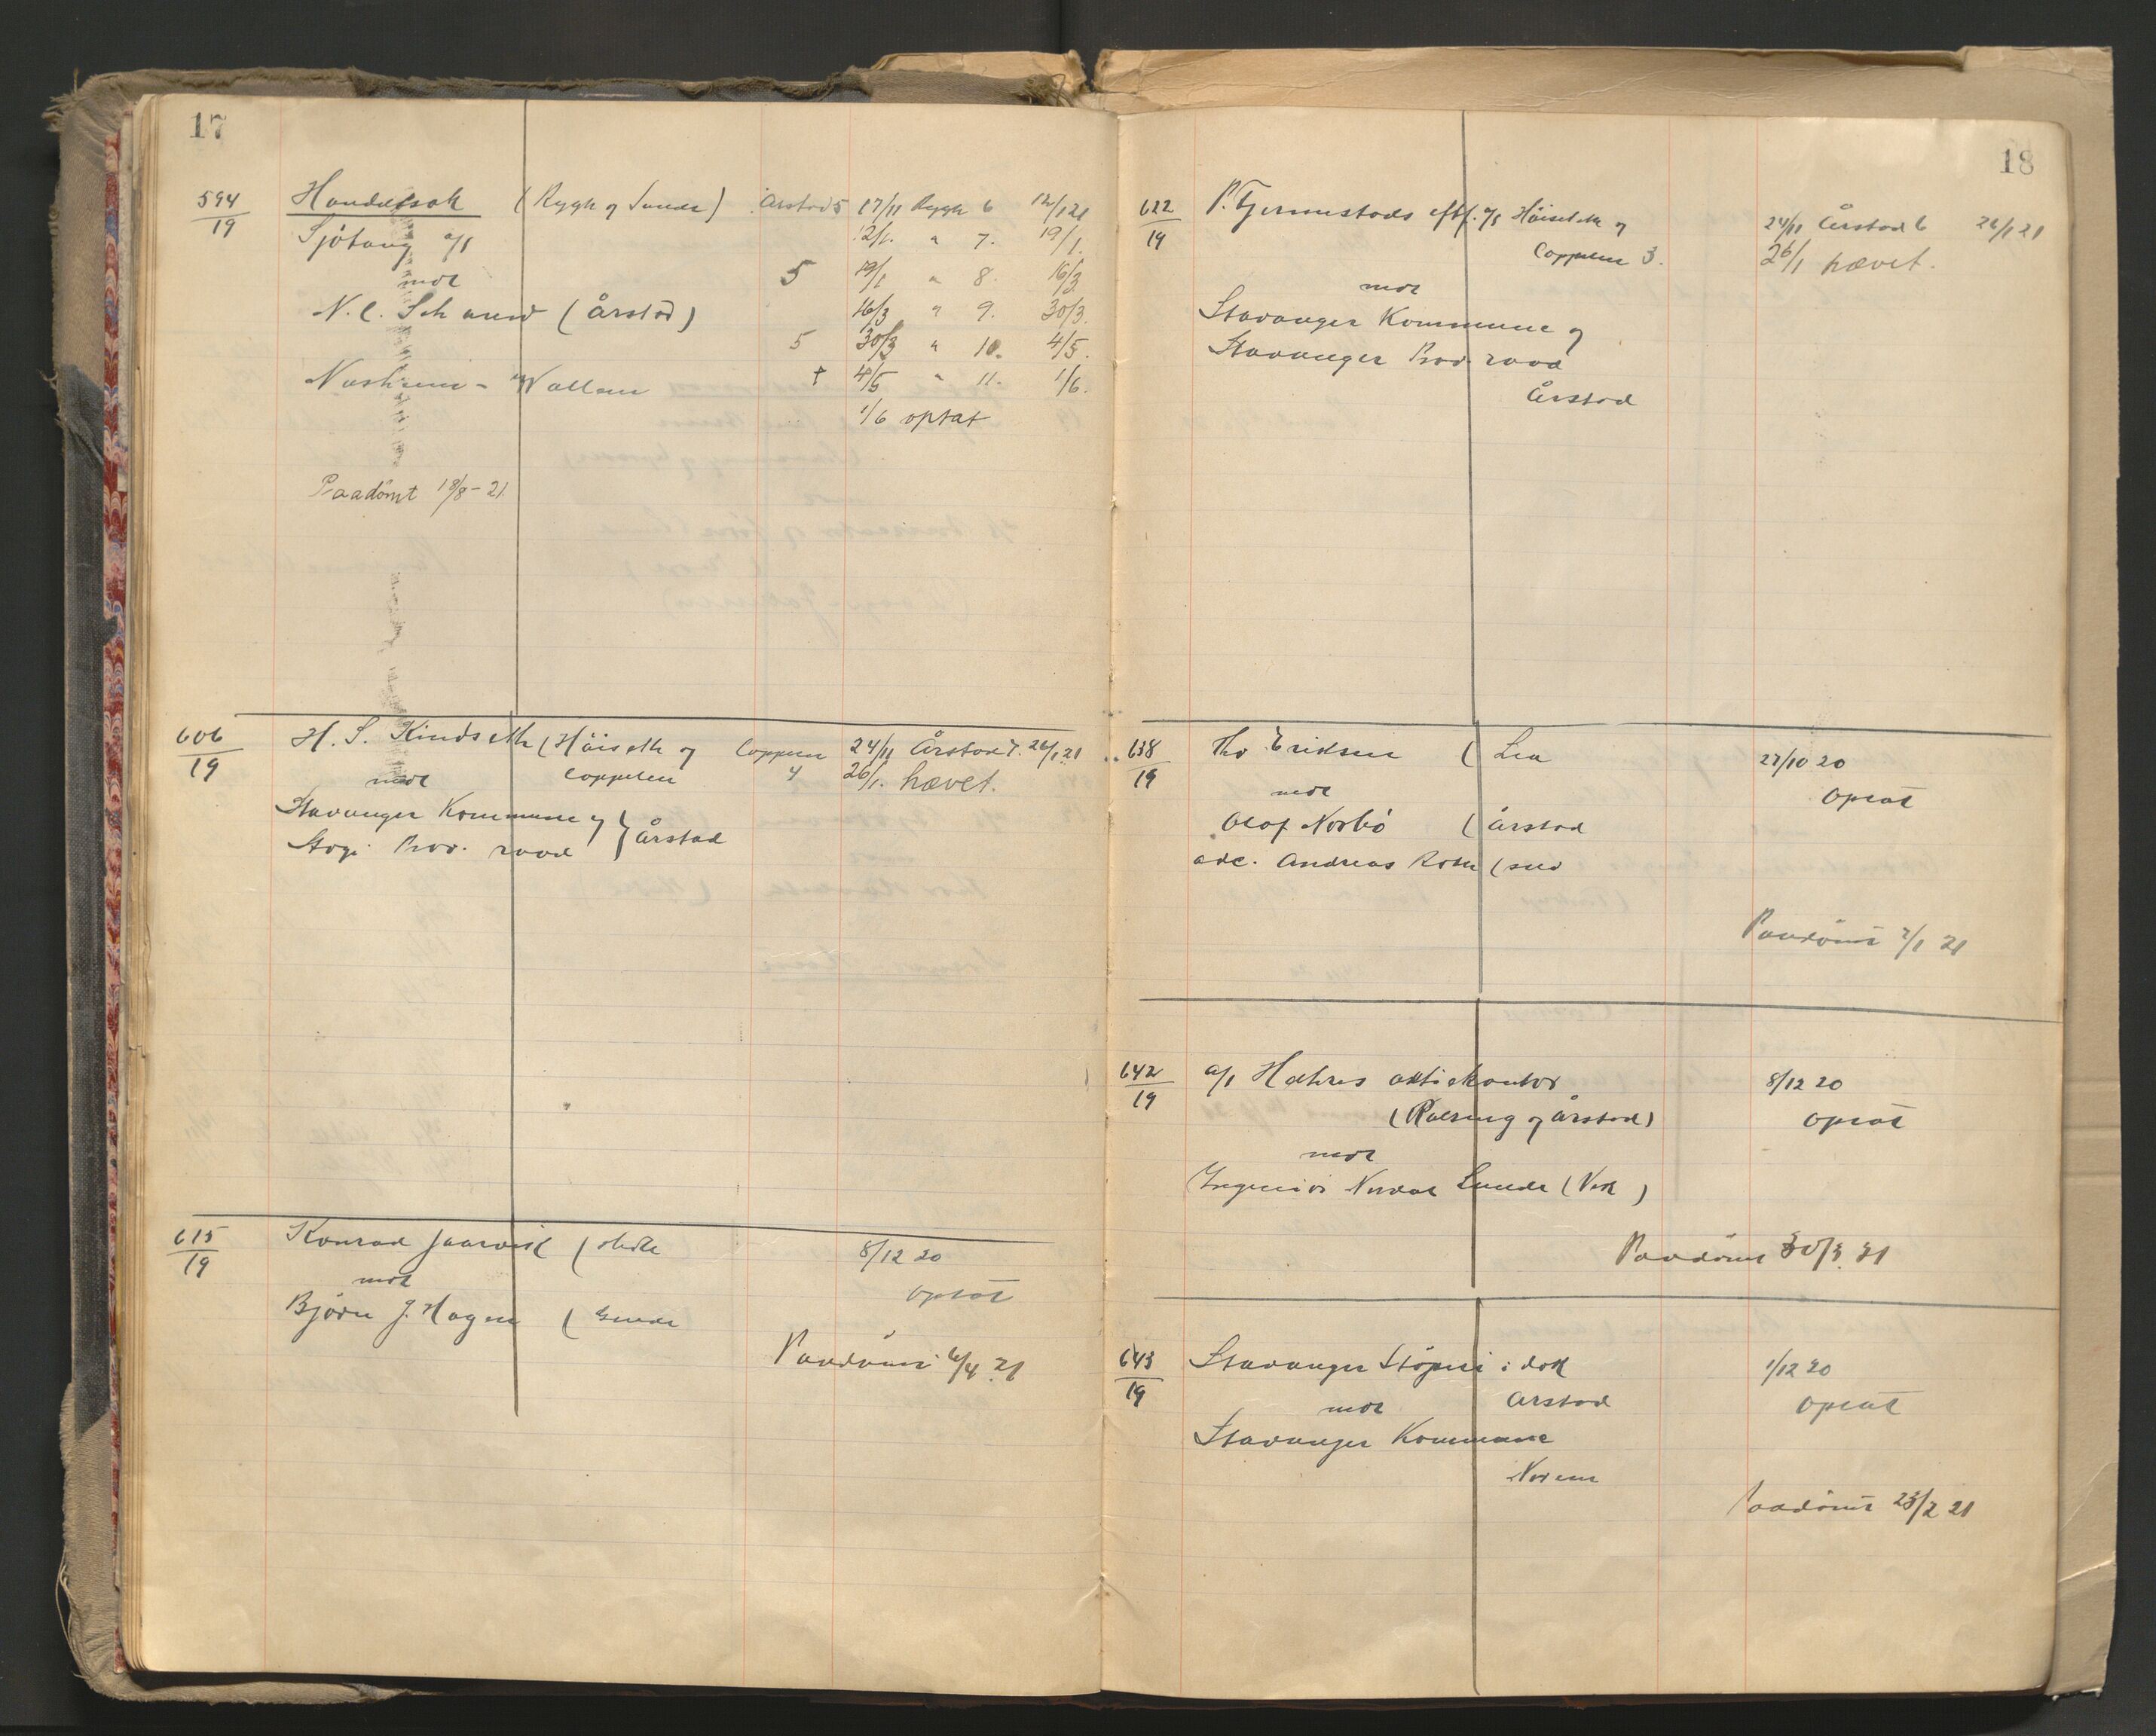 17
594/19 Handelssak (Rygh og Lunde) Årstad 5 17/11 Rygh 6 12/1 21
Sjøtang a/s 12/1. " 7. 19/1.
mot 5 19/1 " 8. 16/3
N. C. (Årstad) 16/3 " 9. 30/3.
5 30/3 " 10. 4/5.
Nasheim - Wallem + 4/5 " 11. 1/6.
1/6 optat
Paadömt 18/8 - 21.
606/19 H. S. Kindseth (Höiseth og Coppelen 24/11 Årstad 7. 26/1 21
mot Coppelen 4 26/1. hævet.
Stavanger Kommune og } Årstad
Stvgr. Prov. raad
615/19 Konrad Jaarvik ( 8/12 20
mot optat
Björn J. Hagen ( Lunde
Paadömt 6/4 21
18
622/19 P. Tjermestads eftf. a/s Höiseth og 24/11 Årstad 6 26/1 21
Coppelen 3. 26/1 hævet.
mot
Stavanger Kommune og
Stavanger Prov. raad
Årstad
638/19 Tho. Eriksen ( Lea 27/10 20
mot optat
Olaf Norbö ( Årstad
adv. Andreas (
Paadömt 7/1 21
642/19 a/s Hæhres aktiekontor 8/12 20
( og Årstad) optat
mot
Ingeniör Nordal Lunde ( )
Paadömt 30/3. 21
643/19 Stavanger Stöperi & dok 1/12 20
mot Årstad optat
Stavanger Kommune
Norem
Paadömt 23/2 21